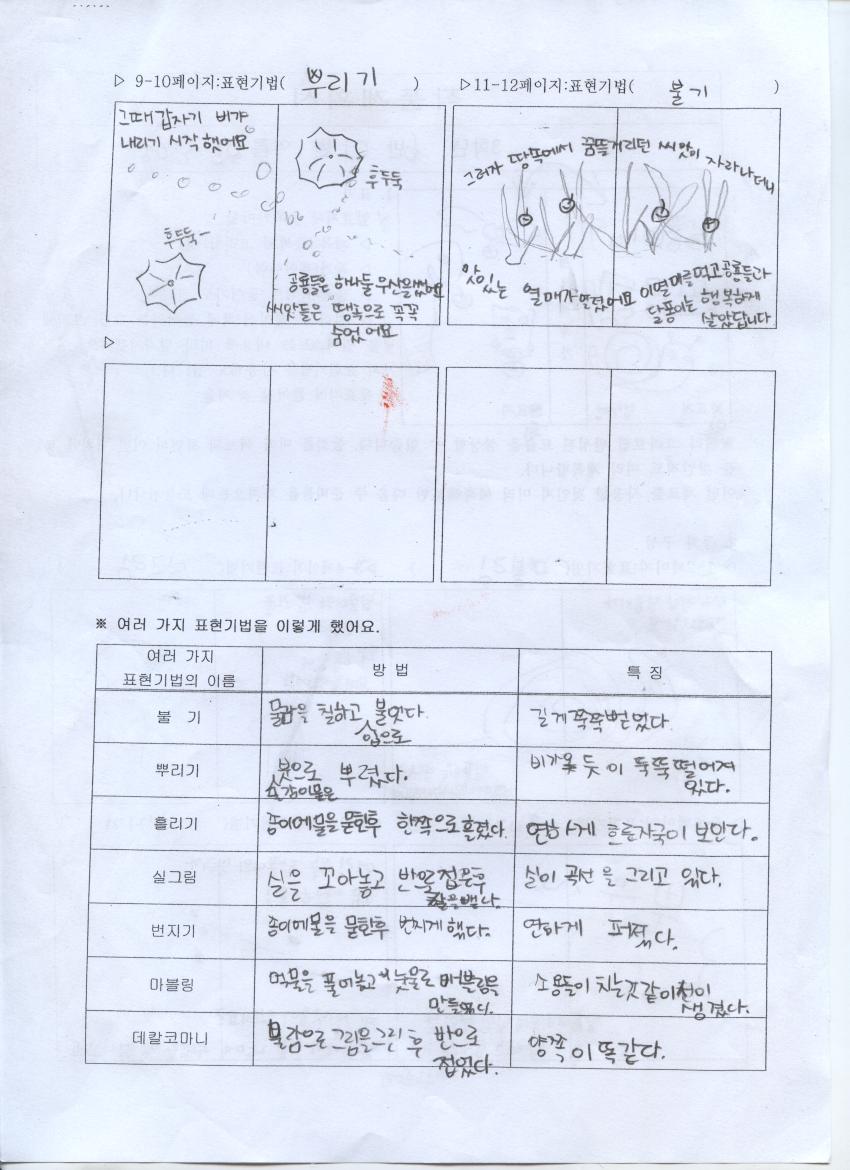 ▷ 9-10페이지:표현기법( 뿌리기 )
▷11-12페이지:표현기법( 불기 )
그때 갑자기 비가
내리기 시작 했어요
후두둑
후두둑-
공룡들은 하나둘 우산을썼어요
씨앗들은 땅속으로 꼭꼭
숨었어요
그러자 땅속에서 꿈뜰거리던 씨앗이 자라나더니
맛있는 열매가 열렸어요 이열매를 먹고 공룡들과
달퐁이는 행복하게
살았답니다
▷
※ 여러 가지 표현기법을 이렇게 했어요.
여러 가지
표현기법의 이름
방 법
특 징
불 기
물감을 칠하고 불었다.
입으로
길게 쭉쭉 뻗었다.
뿌리기
붓으로 뿌렸다.
비가 듯이 뚝뚝 떨어져
있다.
흘리기
종이에물을 묻힌후 한쪽으로 흘렸다.
연하게 흐른자국이 보인다.
실그림
실을 꼬아놓고 반으로 접은후
실이 곡선을 그리고 있다.
번지기
종이에물을 묻힌후 번지게 했다.
연하게 퍼졌다.
마블링
먹물을 풀어놓고
소용돌이 치는것같이
생겼다.
데칼코마니
물감으로 그림을 그린 후 반으로
접었다.
양쪽이 똑같다.